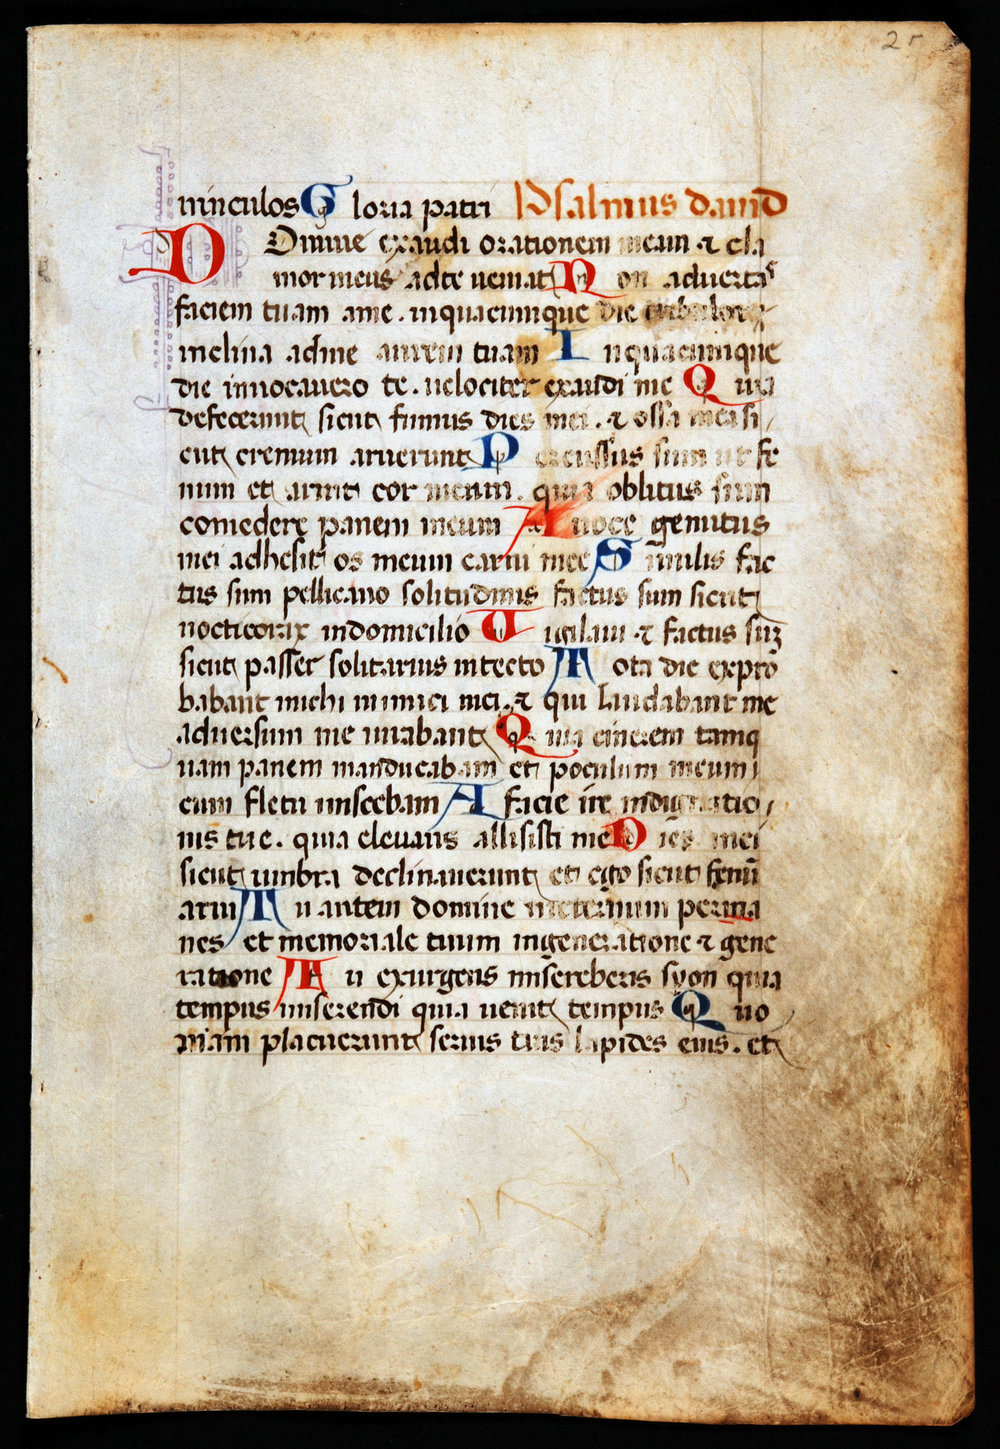 2r
uinculos Gloria patri Psalmus dauid
Domine exaudi orationem meam ⁊ cla
mor meus adte ueniat Non aduertas
faciem tuam ame. inquacumque die
inclina adme aurem tuam Inquacumque
die inuocauero te. uelociter exaudi me Quia
defecerunt sicut fumus dies mei. ⁊ ossa mea si
cut cremium aruerunt Percussus sum ut fe
num et aruit cor meum. quia oblitus sum
comedere panem meum A uoce gemitus
mei adhesit os meum carni mee Similis fac
tus sum pellicano solitudinis factus sum sicut
nocticorax indomicilio Uigilaui ⁊ factus suȝ
sicut passer solitarius intecto Tota die expro
babant michi inimici mei. ⁊ qui laudabant me
aduersum me iurabant Quia cinerem tamq
uam panem manducabam et poculum meum
cum fletu miscebam A facie ire indignatio
nis tue. quia eleuans allisisti me Dies mei
sicut umbra declinauerunt et ego sicut fenū
arui Tu autem domine ineternum perma
nes et memoriale tuum ingeneratione ⁊ gene
ratione Tu exurgens misereberis syon quia
tempus miserendi quia uenit tempus Quo
niam placuerunt seruis tuis lapides eius. et